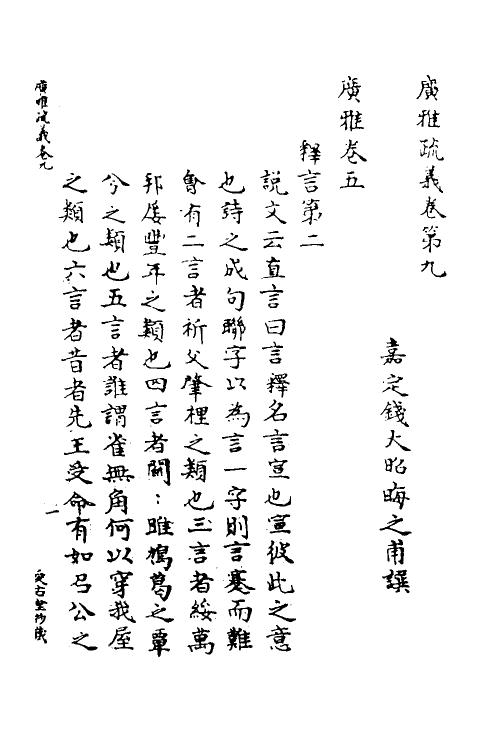 廣雅疏義卷第九
嘉定錢大昭晦之甫譔
廣雅卷五
釋言第二
說文云直言曰言釋名言宣也宣彼此之意
也詩之成句聯字以為言一字則言蹇而難
會有二言者祈父肇禋之類也三言者綏萬
邦屢豐年之類也四言者關:雎鳩葛之覃
今之類也五言者誰謂雀無角何以穿我屋
之類也六言者昔者先王受命有如召公之
廣雅疏義卷九
一
愛古堂抄藏